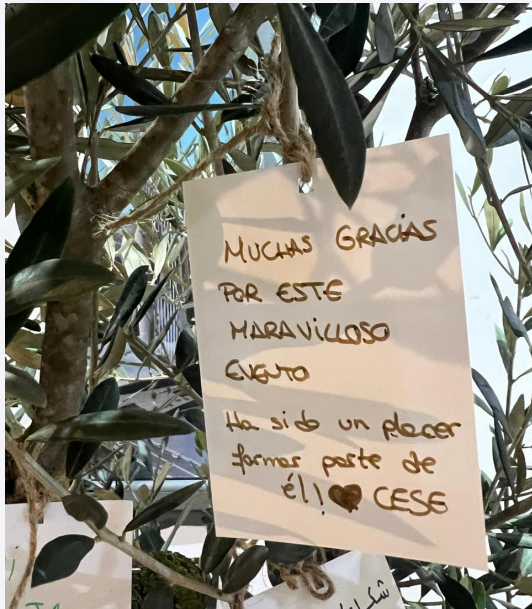 MUCHAS GRACIAS
POR ESTE
MARAVILLOSO
EVENTO
Ha sido un placer
formar parte de
él! ♥ CESE